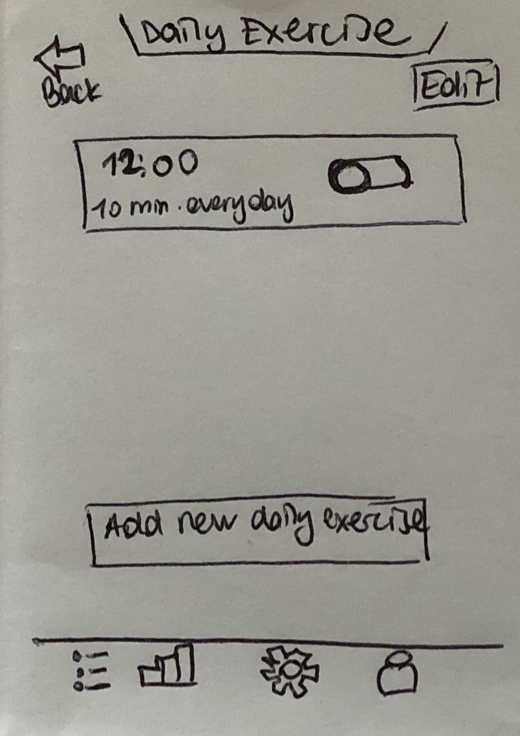 Daily Exercise
Back
Edit
12:00
10 min. everyday
Add new daily exercise